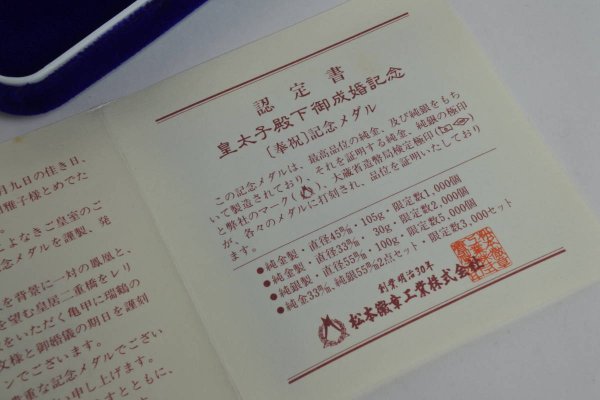 認定書
皇太子殿下御成婚記念
[奉祝]記念メダル
この記念メダルは、最高品位の純金、及び純銀をもち
いて製造されており、それを証明する純金、純銀の極印
と弊社のマーク( )、大蔵省造幣局検定極印( )
が、各々のメダルに打刻され、品位を証明いたしており
ます。
●純金製・直径45㎜・105g・限定数1,000個
●純金製・直径33㎜・30g・限定数2,000個
●純銀製・直径55㎜・限定数5,000個
●純金33㎜、純銀55㎜2点セット・限定数3,000セット
創業明治30年
松本徽章工業株式会社
月九日の佳き日、
雅子様とめでた
よなきご皇室のご
念メダルを謹製、発
を背景に一対の鳳凰と、
を望む皇居二重橋をレリ
をいただく亀甲に瑞鶴の
文様と御婚儀の期日を謹刻
ンでございます。
重な記念メダルでござい
い申し上げます。
すとともに、